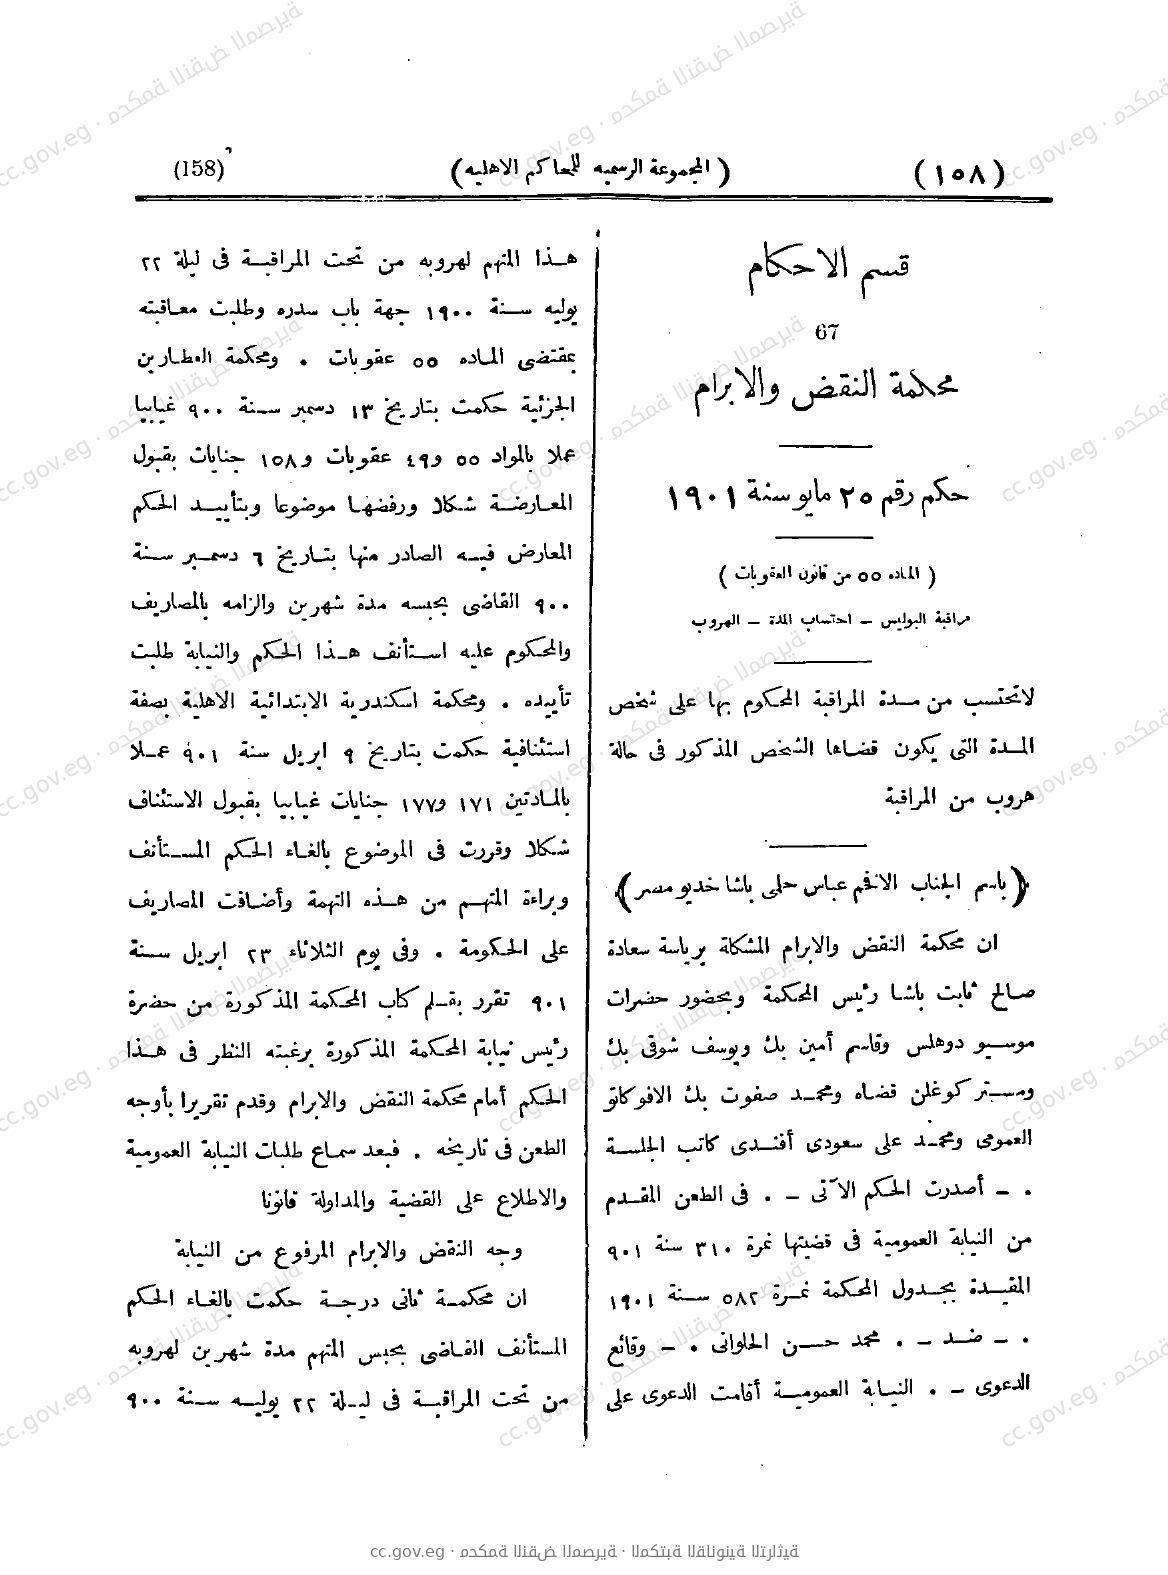 (١٥٨)
(المجموعة الرسميه للمحاكم الاهليه)
(158)
قسم الاحكام
67
محكمة النقض والابرام
حكم رقم ٢٥ مايو سنة ١٩٠١
(الماده ٥٥ من قانون العقوبات)
مراقبة البوليس – احتساب المدة – الهروب
لا تحتسب من مدة المراقبة المحكوم بها على شخص
المدة التى يكون قضاها الشخص المذكور فى حالة
هروب من المراقبة
(باسم الجناب الافخم عباس حلمى باشا خديو مصر)
ان محكمة النقض والابرام المشكلة برياسة سعادة
صالح ثابت باشا رئيس المحكمة وبحضور حضرات
موسيو دوهلس وقاسم أمين بك ويوسف شوقى بك
ومستر كوغلن قضاه ومحمد صفوت بك الافوكاتو
العمومى ومحمد على سعودى أفندى كاتب الجلسة
. – أصدرت الحكم الآتى – . فى الطعن المقدم
من النيابة العمومية فى قضيتها نمرة ٣١٠ سنة ٩٠١
المقيدة بجدول المحكمة نمرة ٥٨٢ سنة ١٩٠١
. – ضد – . محمد حسن الحلوانى . – وقائع
الدعوى – . النيابة العمومية أقامت الدعوى على
هذا المتهم لهروبه من تحت المراقبة فى ليلة ٢٢
يوليه سنة ١٩٠٠ جهة باب سدره وطلبت معاقبته
بمقتضى الماده ٥٥ عقوبات . ومحكمة العطارين
الجزئية حكمت بتاريخ ١٣ دسمبر سنة ٩٠٠ غيابيا
عملا بالمواد ٥٥ و٤٩ عقوبات و١٥٨ جنايات بقبول
المعارضة شكلا ورفضها موضوعا وبتأييد الحكم
المعارض فيه الصادر منها بتاريخ ٦ دسمبر سنة
٩٠٠ القاضى بحبسه مدة شهرين والزامه بالمصاريف
والمحكوم عليه استأنف هذا الحكم والنيابة طلبت
تأييده . ومحكمة اسكندرية الابتدائية الاهلية بصفة
استئنافية حكمت بتاريخ ٩ ابريل سنة ٩٠١ عملا
بالمادتين ١٧١ و١٧٧ جنايات غيابيا بقبول الاستئناف
شكلا وقررت فى الموضوع بالغاء الحكم المستأنف
وبراءة المتهم من هذه التهمة وأضافت المصاريف
على الحكومة . وفى يوم الثلاثاء ٢٣ ابريل سنة
٩٠١ تقرر بقلم كتاب المحكمة المذكورة من حضرة
رئيس نيابة المحكمة المذكورة برغبته النظر فى هذا
الحكم أمام محكمة النقض والابرام وقدم تقريرا بأوجه
الطعن فى تاريخه . فبعد سماع طلبات النيابة العمومية
والاطلاع على القضية والمداولة قانونا
وجه النقض والابرام المرفوع من النيابة
ان محكمة ثانى درجة حكمت بالغاء الحكم
المستأنف القاضى بحبس المتهم مدة شهرين لهروبه
من تحت المراقبة فى ليلة ٢٢ يوليه سنة ٩٠٠
cc.gov.eg · محكمة النقض المصرية · المكتبة القانونية التراثية